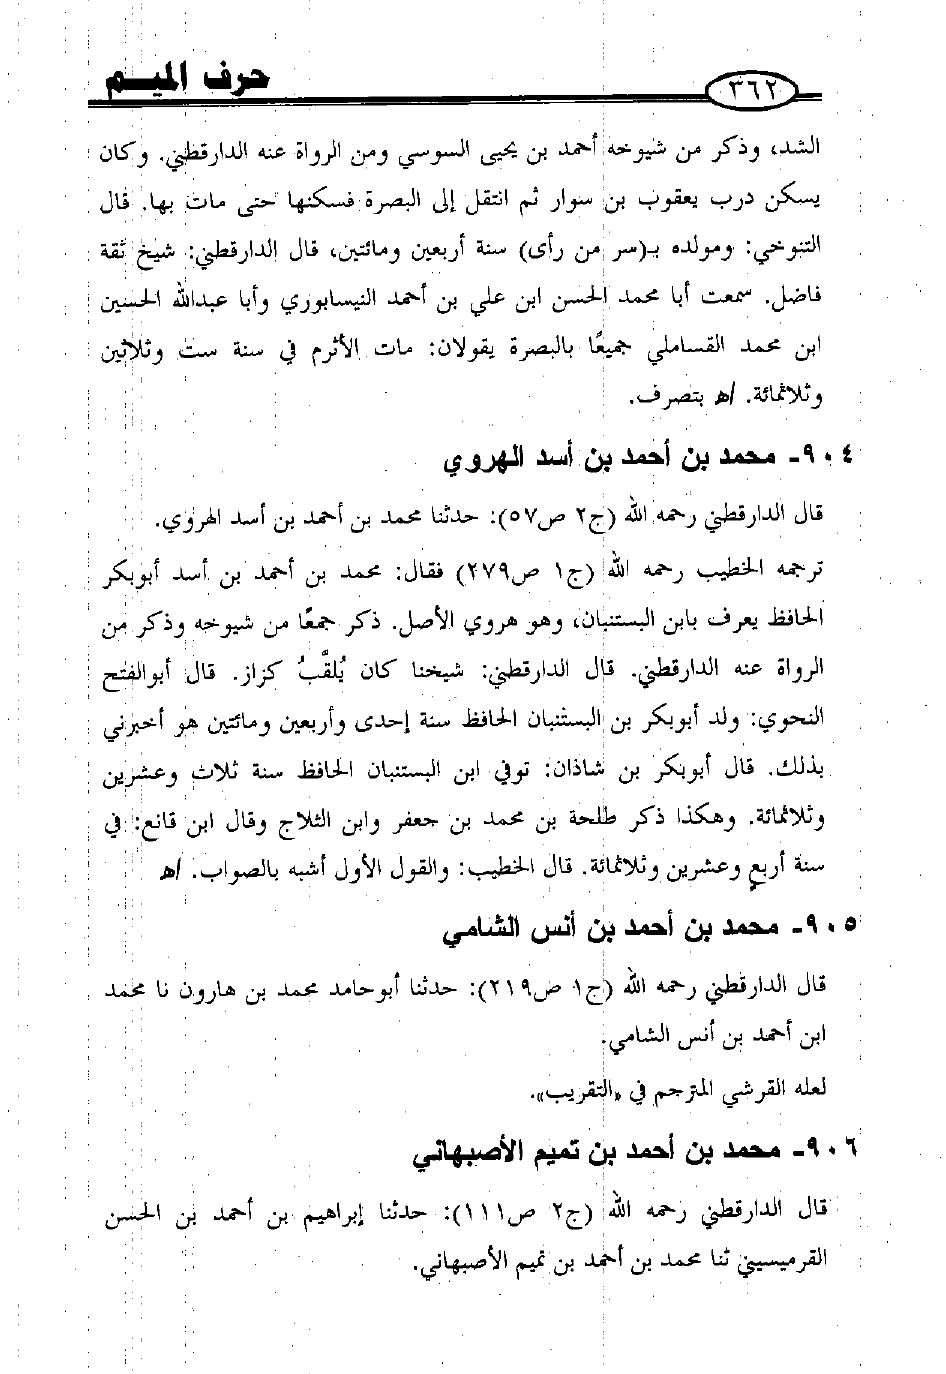 حرف الميم
٣٦٢
الشد، وذكر من شيوخه أحمد بن يحيى السوسي ومن الرواة عنه الدارقطني. وكان
يسكن درب يعقوب بن سوار ثم انتقل إلى البصرة فسكنها حتى مات بها. قال
التنوخي: ومولده بـ(سر من رأى) سنة أربعين ومائتين، قال الدارقطني: شيخ ثقة
فاضل. سمعت أبا محمد الحسن ابن علي بن أحمد النيسابوري وأبا عبدالله الحسين
ابن محمد القساملي جميعًا بالبصرة يقولان: مات الأثرم في سنة ست وثلاثين
وثلاثمائة. اهـ بتصرف.
٩٠٤- محمد بن أحمد بن أسد الهروي
قال الدارقطني رحمه الله (ج٢ ص٥٧): حدثنا محمد بن أحمد بن أسد الهروي.
ترجمه الخطيب رحمه الله (ج١ ص٢٧٩) فقال: محمد بن أحمد بن أسد أبوبكر
الحافظ يعرف بابن البستنبان، وهو هروي الأصل. ذكر جمعًا من شيوخه وذكر من
الرواة عنه الدارقطني. قال الدارقطني: شيخنا كان يُلقَّبُ كزاز. قال أبوالفتح
النحوي: ولد أبوبكر بن البستنبان الحافظ سنة إحدى وأربعين ومائتين هو أخبرني
بذلك. قال أبوبكر بن شاذان: توفي ابن البستنبان الحافظ سنة ثلاث وعشرين
وثلاثمائة. وهكذا ذكر طلحة بن محمد بن جعفر وابن الثلاج وقال ابن قانع: في
سنة أربع وعشرين وثلاثمائة. قال الخطيب: والقول الأول أشبه بالصواب. اهـ
٩٠٥- محمد بن أحمد بن أنس الشامي
قال الدارقطني رحمه الله (ج١ ص٢١٩): حدثنا أبوحامد محمد بن هارون نا محمد
ابن أحمد بن أنس الشامي.
لعله القرشي المترجم في «التقريب».
٩٠٦- محمد بن أحمد بن تميم الأصبهاني
قال الدارقطني رحمه الله (ج٢ ص١١١): حدثنا إبراهيم بن أحمد بن الحسن
القرميسيني ثنا محمد بن أحمد بن تميم الأصبهاني.